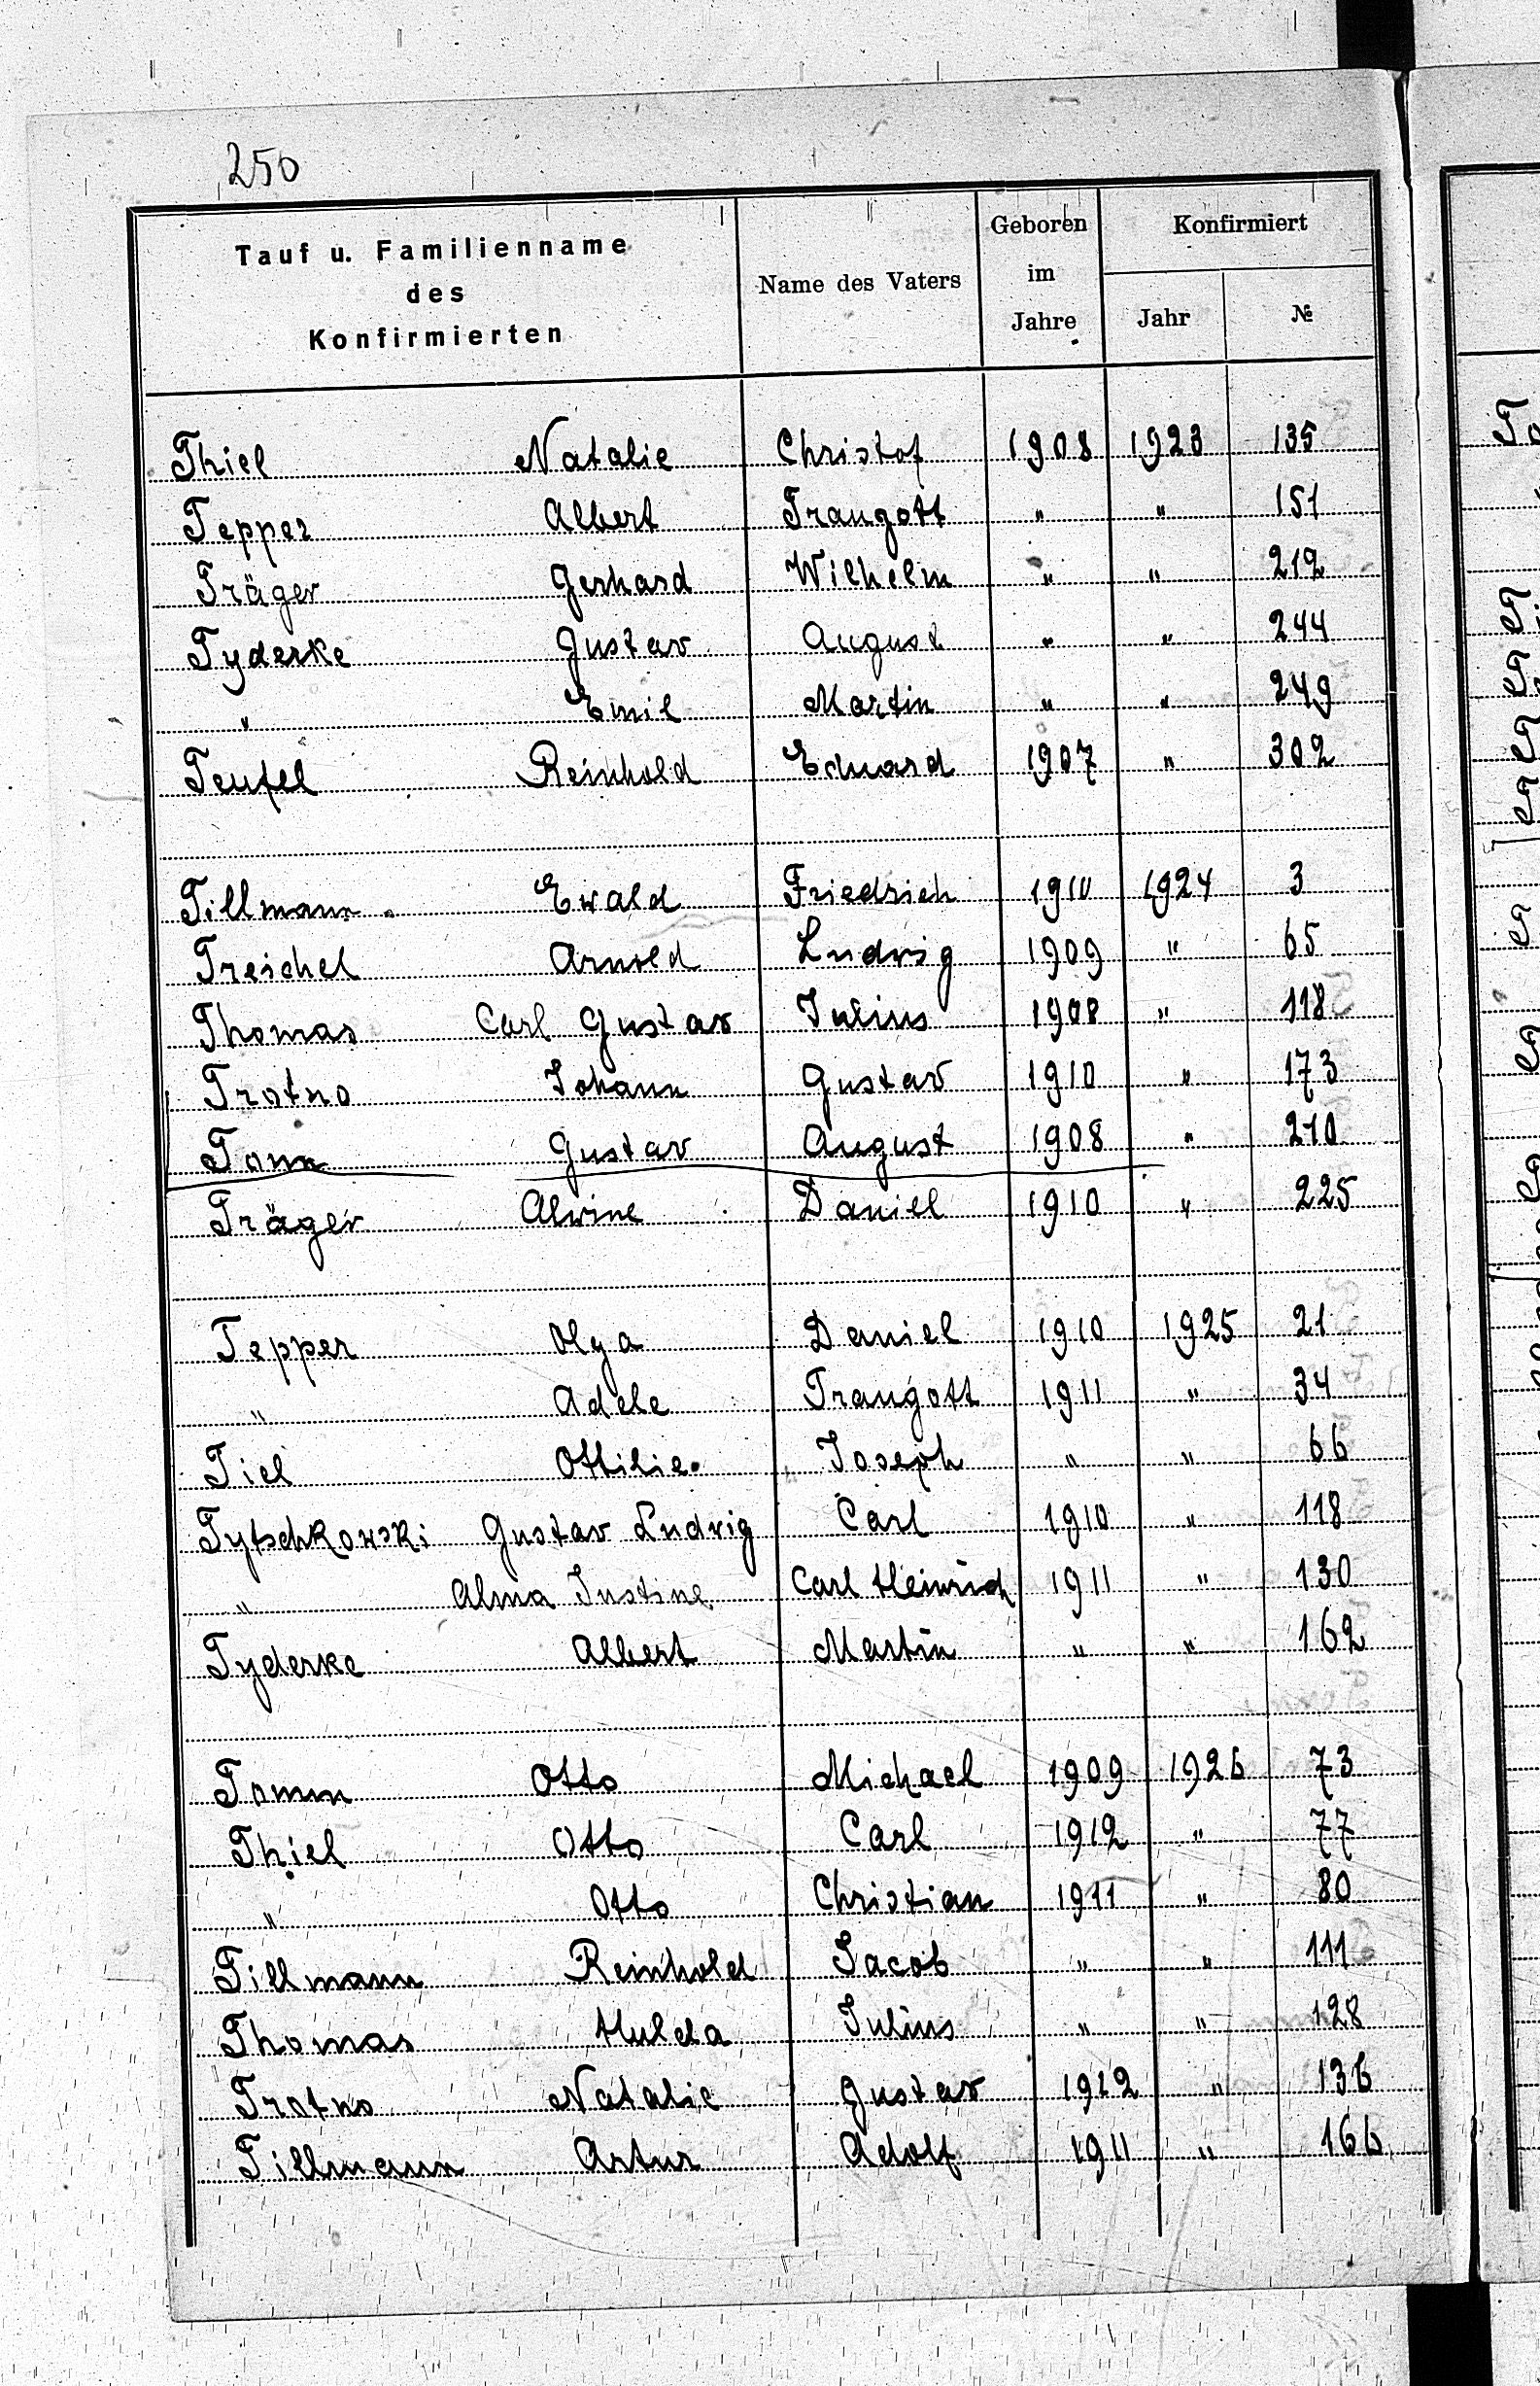 250
Tauf u. Familienname des Konfirmierten | Name des Vaters | Geboren im Jahre | Konfirmiert Jahr | №
Thiel Natalie Christof 1908 1923 135
Tepper Albert Traugott " " 151
Träger Gerhard Wilhelm " " 212
Tyderke Gustav August " " 244
" Emil Martin " " 249
Teufel Reinhold Eduard 1907 " 302
Tillmann Ewald Friedrich 1910 1924 3
Treichel Arnold Ludwig 1909 " 65
Thomas Carl Gustav Julius 1908 " 118
Trotno Johann Gustav 1910 " 173
Tomm Gustav August 1908 " 210
Träger Alwine Daniel 1910 " 225
Tepper Olga Daniel 1910 1925 21
" Adele Traugott 1911 " 34
Tiel Ottilie Joseph " " 66
Tytschkowski Gustav Ludwig Carl 1910 " 118
" Alma Justine Carl Heinrich 1911 " 130
Tyderke Albert Martin " " 162
Tomm Otto Michael 1909 1926 73
Thiel Otto Carl 1912 " 77
" Otto Christian 1911 " 80
Tillmann Reinhold Jacob " " 111
Thomas Hulda Julius " " 128
Trotno Natalie Gustav 1912 " 136
Tillmann Artur Adolf 1911 " 166